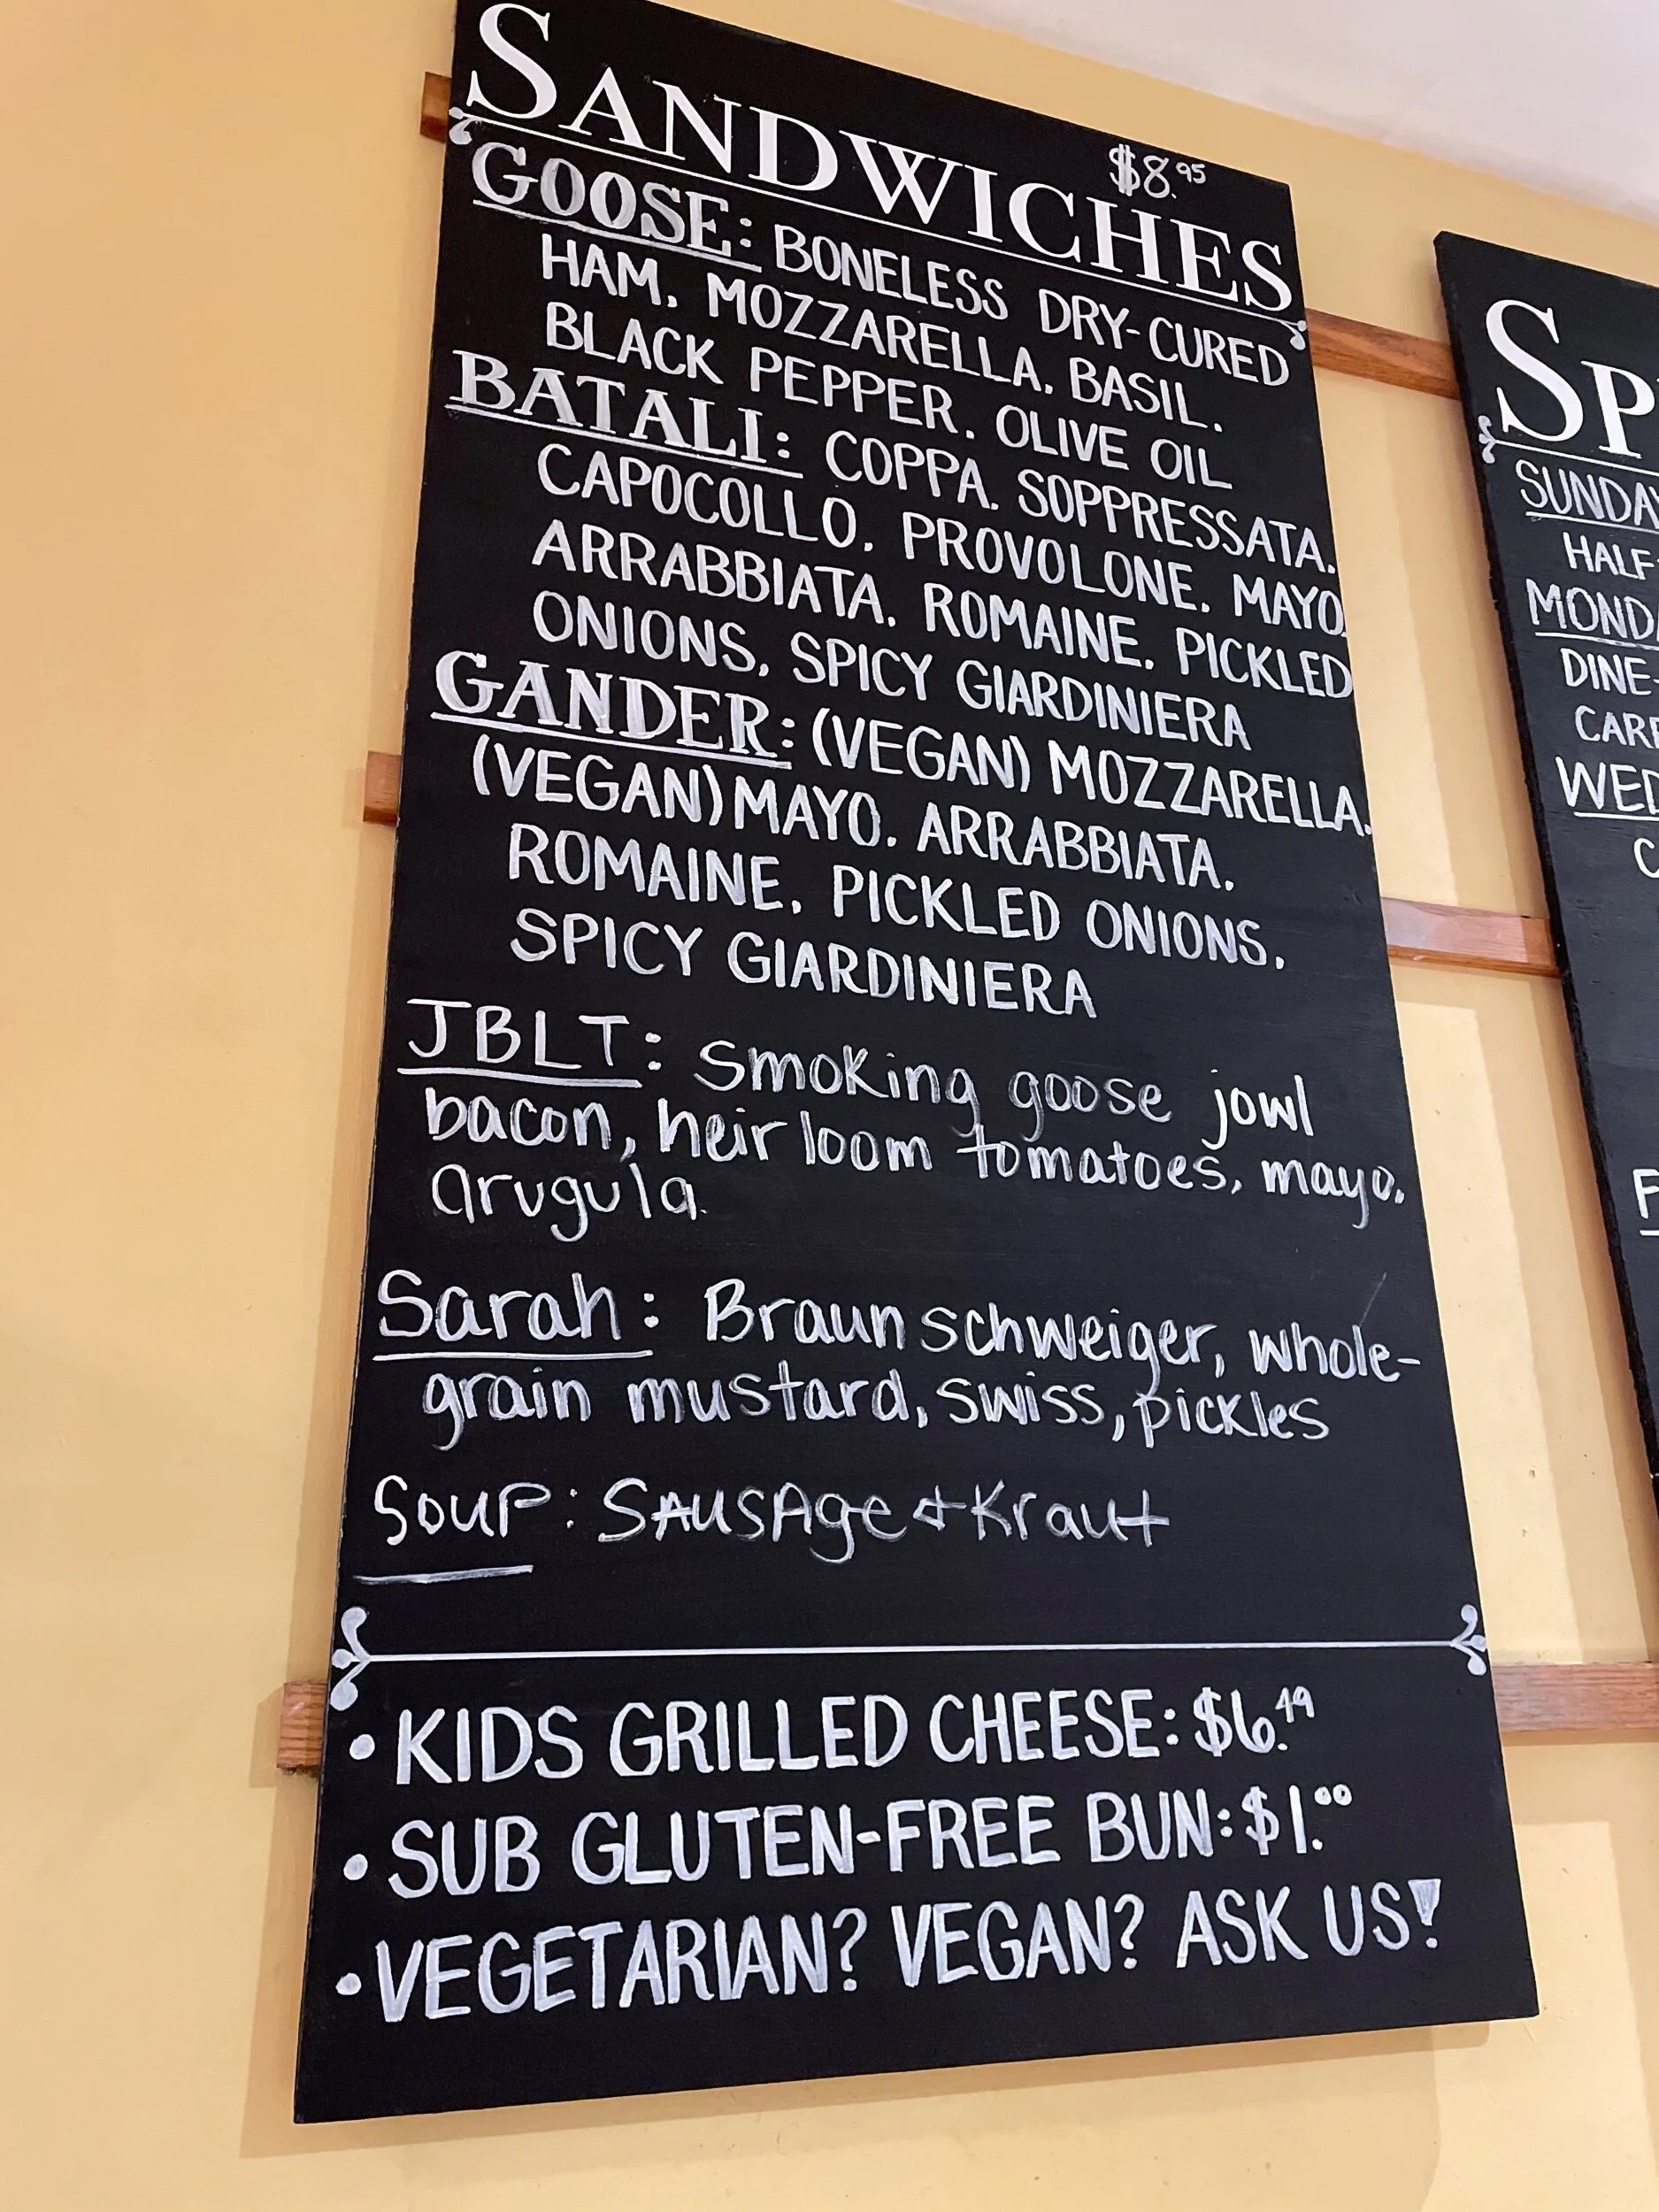 SANDWICHES $8.95
GOOSE: BONELESS DRY-CURED
HAM, MOZZARELLA, BASIL,
BLACK PEPPER, OLIVE OIL
BATALI: COPPA, SOPPRESSATA,
CAPOCOLLO, PROVOLONE, MAYO,
ARRABBIATA, ROMAINE, PICKLED
ONIONS, SPICY GIARDINIERA
GANDER: (VEGAN) MOZZARELLA,
(VEGAN) MAYO, ARRABBIATA,
ROMAINE, PICKLED ONIONS,
SPICY GIARDINIERA
JBLT: smoking goose jowl
bacon, heirloom tomatoes, mayo,
arugula.
Sarah: Braunschweiger, whole-
grain mustard, swiss, pickles
SOUP: SAUSAge & Kraut
• KIDS GRILLED CHEESE: $6.49
• SUB GLUTEN-FREE BUN: $1.00
• VEGETARIAN? VEGAN? ASK US!
SP
SUNDAY
HALF-
MONDA
DINE-
CARR
WED
C
F